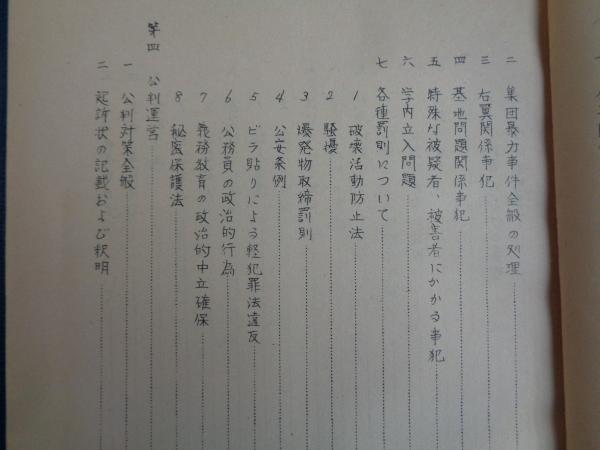 二 集団暴力事件全般の処理
三 右翼関係事犯
四 基地問題関係事犯
五 特殊な被疑者、被害者にかかる事犯
六 学内立入問題
七 各種罰則について
1 破壊活動防止法
2 騒擾
3 爆発物取締罰則
4 公安条例
5 ビラ貼りによる軽犯罪法違反
6 公務員の政治的行為
7 義務教育の政治的中立確保
8 秘密保護法
第四 公判運営
一 公判対策全般
二 起訴状の記載および釈明